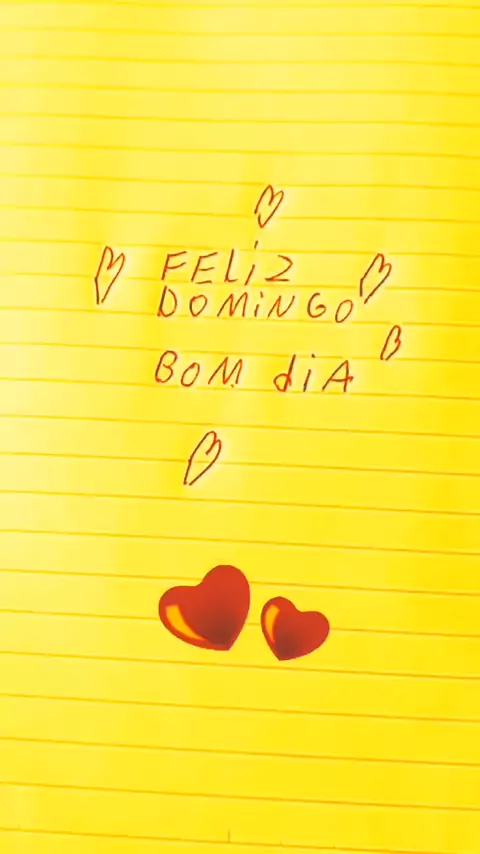 FELIZ
DOMINGO
BOM diA